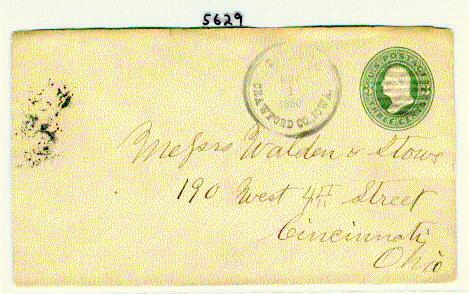 5629
1
1880
CRAWFORD CO. IOWA
U.S. POSTAGE
THREE CENTS
Messrs Walden & Stowe
190 West 4th Street
Cincinnati
Ohio